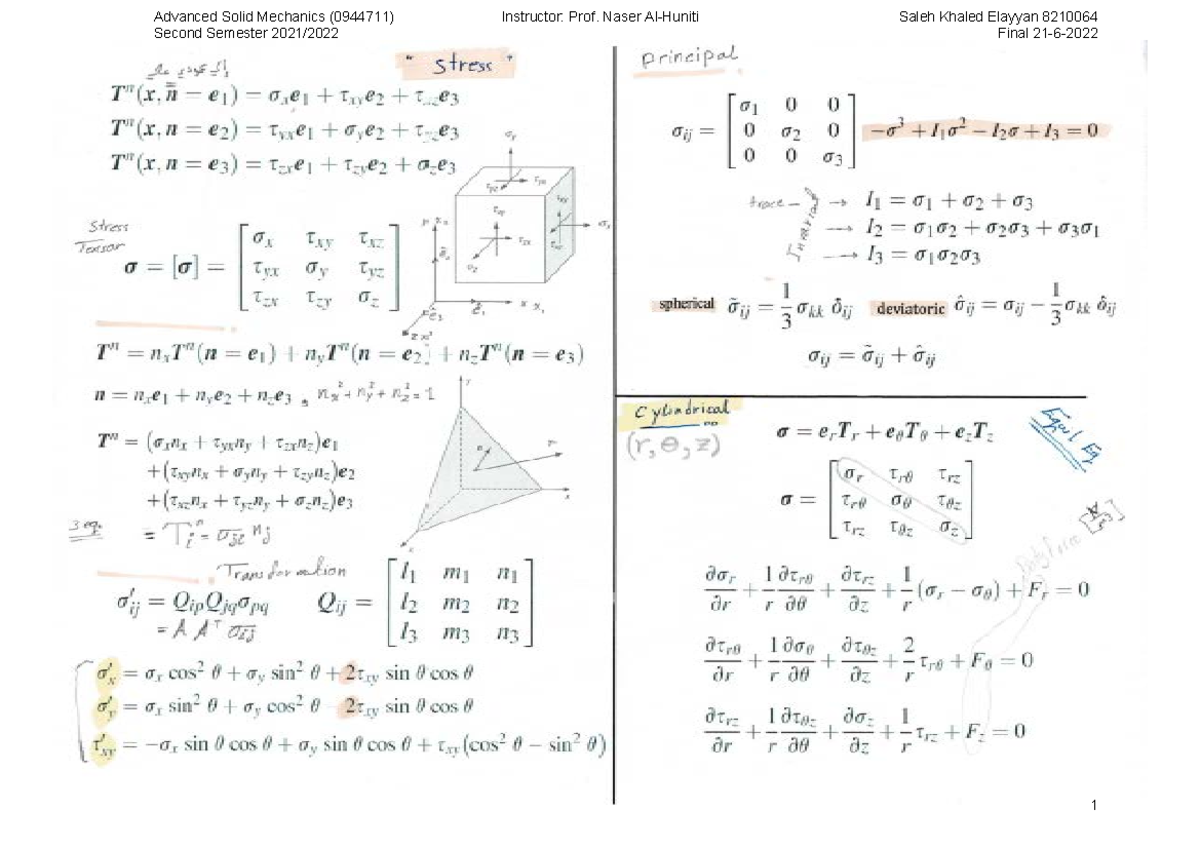 Advanced Solid Mechanics (0944711) Instructor: Prof. Naser Al-Huniti Saleh Khaled Elayyan 8210064
Second Semester 2021/2022 Final 21-6-2022
" Stress "
Tⁿ(x, n = e₁) = σₓe₁ + τₓᵧe₂ + τ e₃
Tⁿ(x, n = e₂) = τᵧₓe₁ + σᵧe₂ + τ e₃
Tⁿ(x, n = e₃) = τ_zx e₁ + τ_zy e₂ + σ_z e₃
Stress
Tensor
σ = [σ] = [σₓ τ_xy τ_xz
τ_yx σ_y τ_yz
τ_zx τ_zy σ_z]
Tⁿ = nₓTⁿ(n = e₁) + n_yTⁿ(n = e₂) + n_zTⁿ(n = e₃)
n = nₓe₁ + n_ye₂ + n_ze₃ , nₓ² + n_y² + n_z² = 1
Tⁿ = (σₓnₓ + τ_yx n_y + τ_zx n_z)e₁
+(τ_xy nₓ + σ_y n_y + τ_zy n_z)e₂
+(τ_xz nₓ + τ_yz n_y + σ_z n_z)e₃
3 eq. = Tᵢⁿ = σⱼᵢ nⱼ
Transformation
σ′ᵢⱼ = Qᵢₚ Qⱼq σₚq Qᵢⱼ = [l₁ m₁ n₁
l₂ m₂ n₂
l₃ m₃ n₃]
= A Aᵀ σᵢⱼ
σ′ₓ = σₓ cos² θ + σ_y sin² θ + 2τ_xy sin θ cos θ
σ′_y = σₓ sin² θ + σ_y cos² θ 2τ_xy sin θ cos θ
τ′_xy = −σₓ sin θ cos θ + σ_y sin θ cos θ + τ_xy(cos² θ − sin² θ)
principal
σᵢⱼ = [σ₁ 0 0
0 σ₂ 0
0 0 σ₃] −σ³ + I₁σ² − I₂σ + I₃ = 0
trace → I₁ = σ₁ + σ₂ + σ₃
→ I₂ = σ₁σ₂ + σ₂σ₃ + σ₃σ₁
→ I₃ = σ₁σ₂σ₃
spherical σ̃ᵢⱼ = 1/3 σₖₖ δᵢⱼ deviatoric σ̂ᵢⱼ = σᵢⱼ − 1/3 σₖₖ δᵢⱼ
σᵢⱼ = σ̃ᵢⱼ + σ̂ᵢⱼ
Cylindrical
(r, θ, z)
σ = e_rT_r + e_θT_θ + e_zT_z
σ = [σ_r τ_rθ τ_rz
τ_rθ σ_θ τ_θz
τ_rz τ_θz σ_z]
Body Force
∂σ_r/∂r + 1/r ∂τ_rθ/∂θ + ∂τ_rz/∂z + 1/r (σ_r − σ_θ) + F_r = 0
∂τ_rθ/∂r + 1/r ∂σ_θ/∂θ + ∂τ_θz/∂z + 2/r τ_rθ + F_θ = 0
∂τ_rz/∂r + 1/r ∂τ_θz/∂θ + ∂σ_z/∂z + 1/r τ_rz + F_z = 0
1